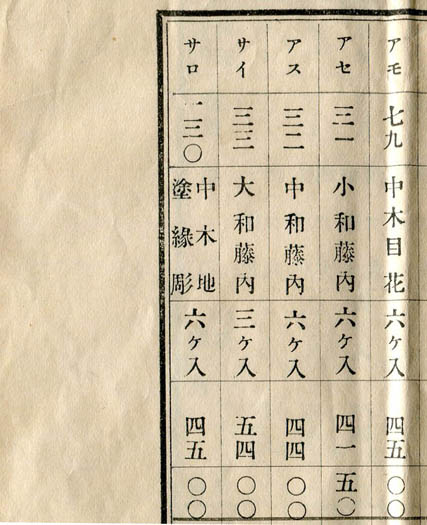 アモ 七九 中木目花 六ケ入 四五〇〇
アセ 三一 小和藤内 六ケ入 四一五〇
アス 三二 中和藤内 六ケ入 四四〇〇
サイ 三三 大和藤内 三ケ入 五四〇〇
サロ 二三〇 中木地 塗緣彫 六ケ入 四五〇〇